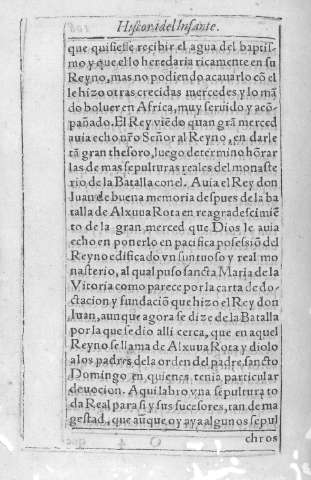 Histori. del Infante.
que quisiesse recibir el agua del baptis-
mo y que ello heredaria ricamente en su
Reyno, mas no podiendo acauarlo cõ el
le hizo otras crecidas mercedes y lo mã
do boluer en Africa, muy seruido y acõ-
pañado. El Rey viẽdo quan grã merced
auia echo nr̃o Señor al Reyno, en darle
tã gran thesoro, luego determino hõrar
las de mas sepulturas reales del monaste
rio de la Batalla con el. Auia el Rey don
Juan de buena memoria despues de la ba
talla de Alxuua Rota en reagradescimiẽ
to de la gran merced que Dios le auia
echo en ponerlo en pacifica possessiõ del
Reyno edificado vn suntuoso y real mo
nasterio, al qual puso sancta Maria de la
Vitoria como parece por la carta de do-
ctacion y fundaciõ que hizo el Rey don
Juan, aunque agora se dize de la Batalla
por la que se dio alli cerca, que en aquel
Reyno se llama de Alxuua Rota y diolo
a los padres de la orden del padre sancto
Domingo en quienes tenia particular
deuocion. Aqui labro vna sepultura to
da Real para si y sus sucesores, tan de ma
gestad, que auque oy aya algunos sepul
chros